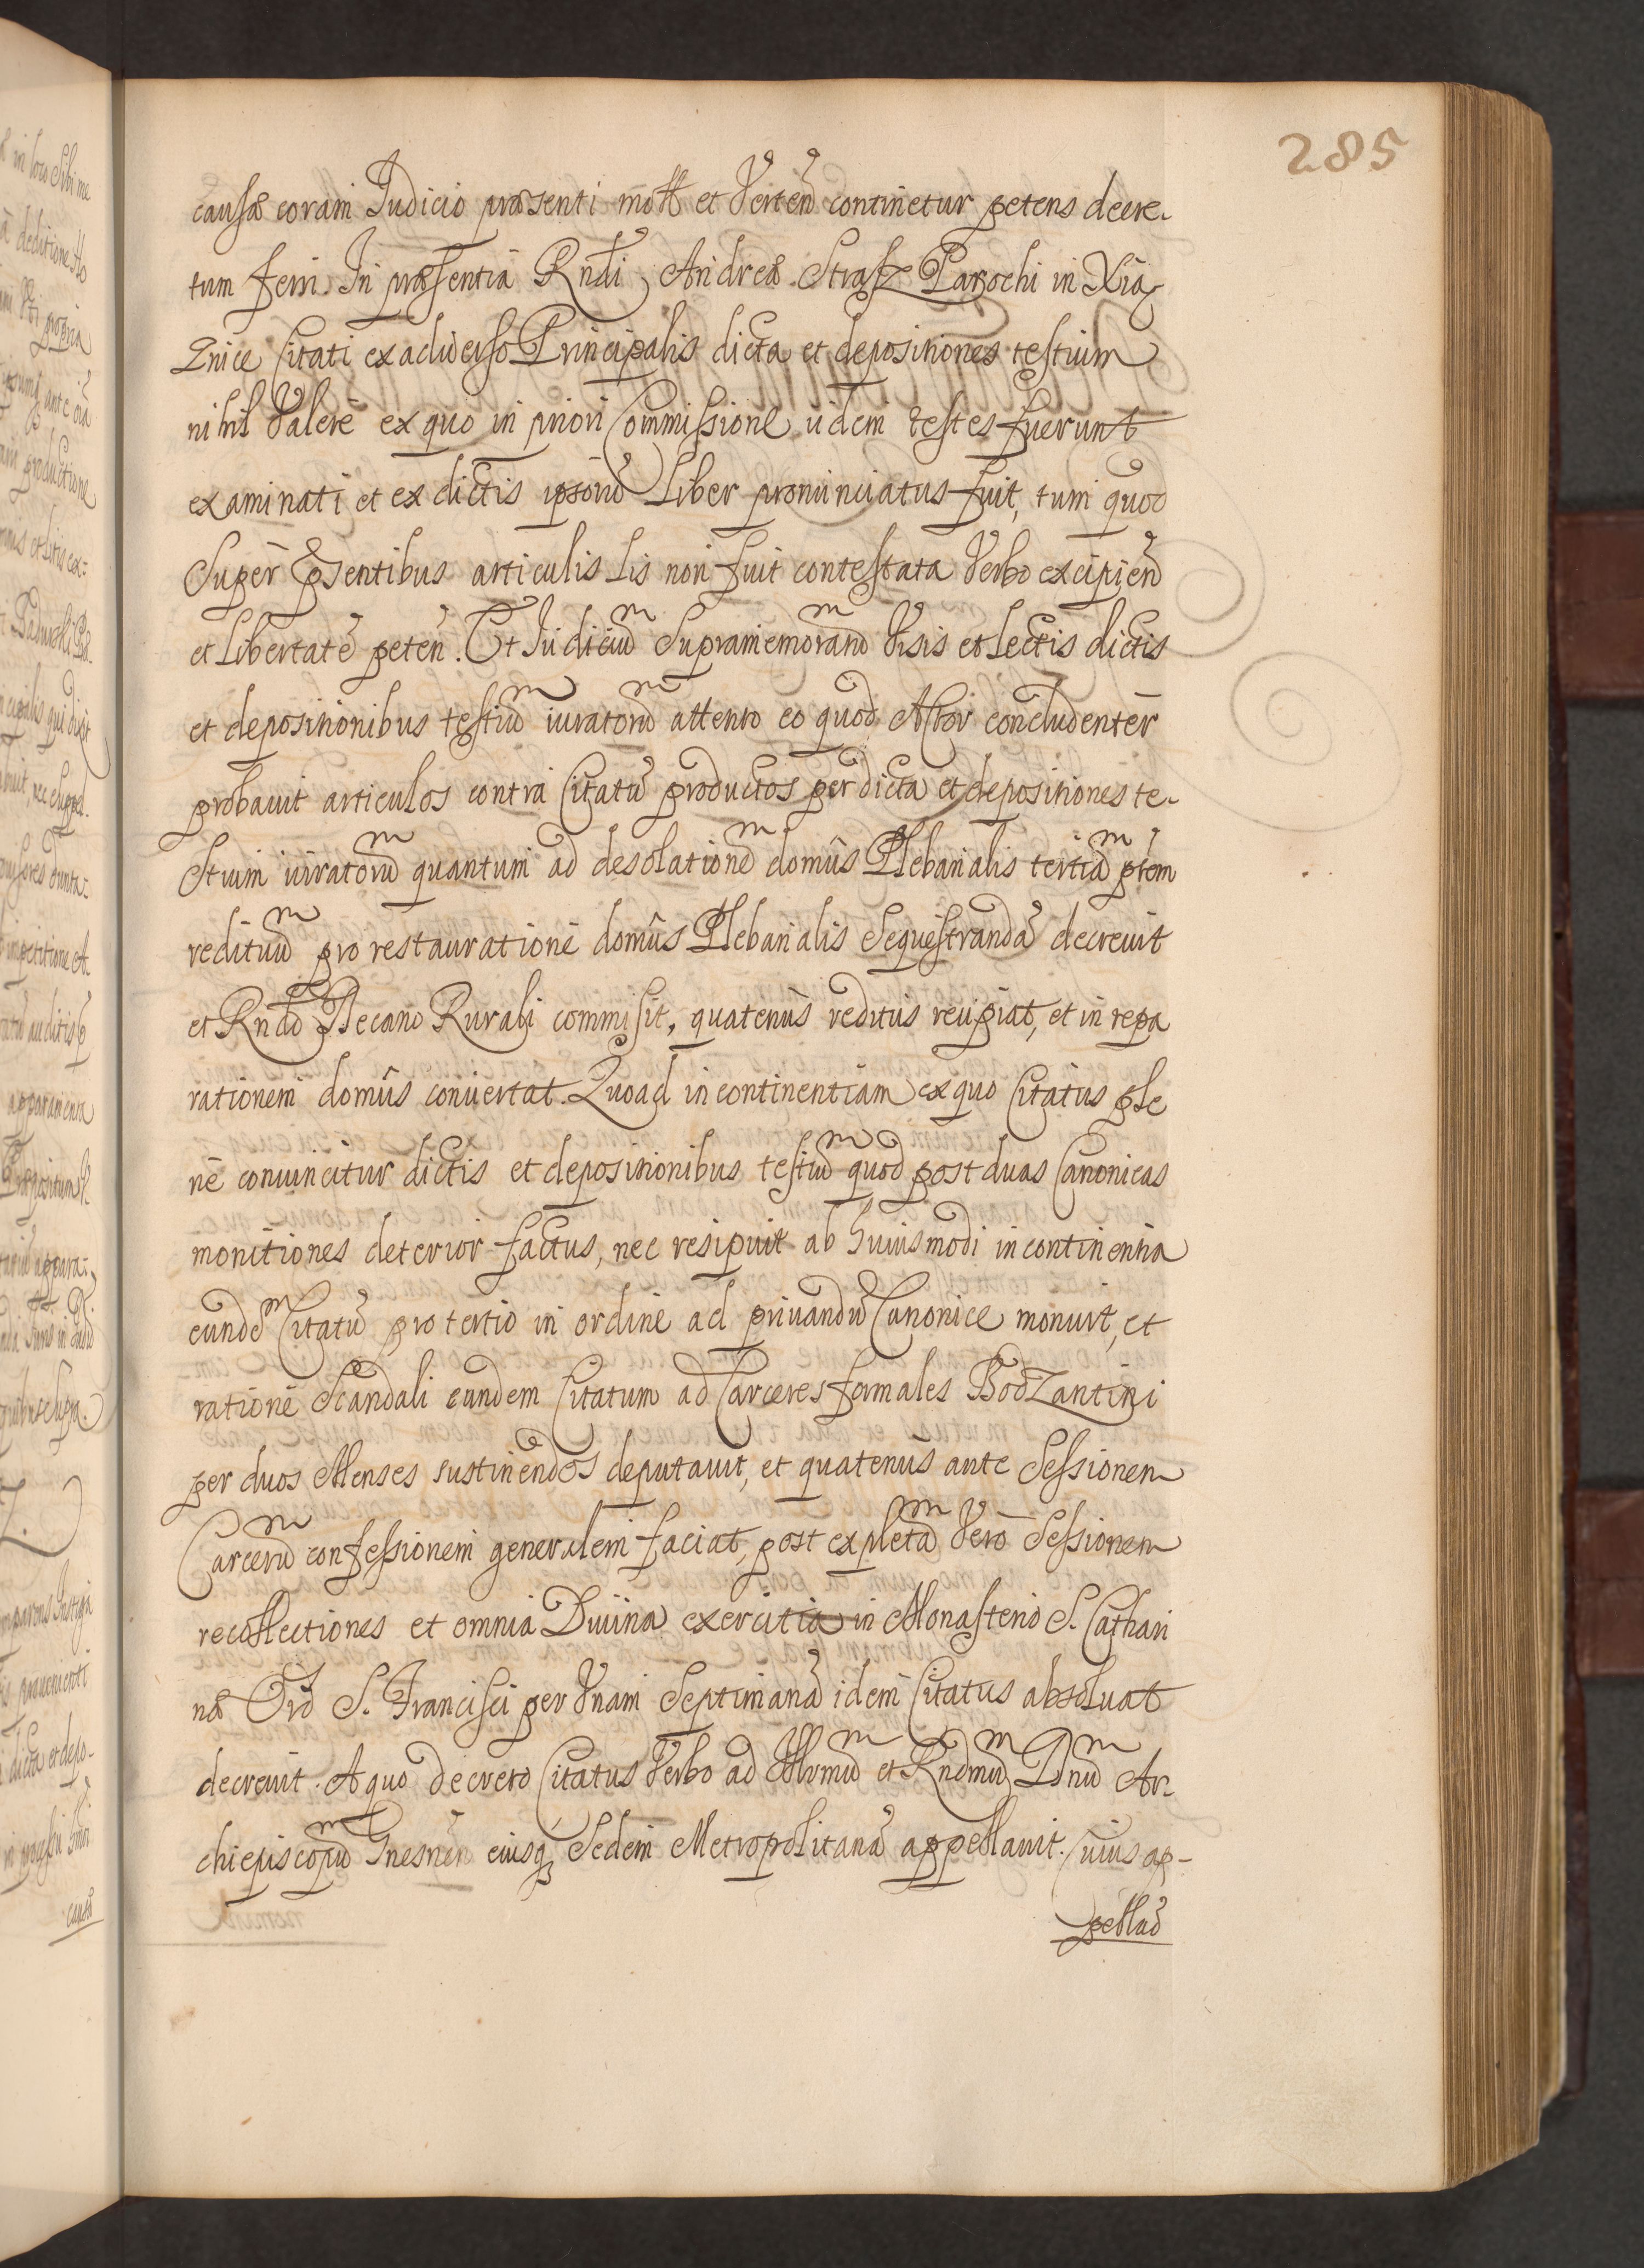 285
causæ coram Judicio præsenti mott et Verteñ continetur petens decre-
tum ferri. In præsentiâ Rndi Andreæ Strasz Parochi in Xią
znice Citati ex adverso Principalis dicta et depositiones testium
nihil Valere ex quo in priori Commissione iidem testes fuerunt
examinati et ex dictis ipsorũ Liber pronunciatus fuit, tum quod
Super p̃sentibus articulis Lis non fuit contestata Verbo excipieñ
et Libertatẽ peteñ. Et Judiciũ Supramemoratũ Visis et Lectis dictis
et depositionibus testiũ iuratorũ attento eo quod Actor concludenter
probavit articulos contra Citatũ productos per dicta et depositiones te-
stium iuratorũ quantum ad desolationẽ domûs Plebanalis tertiã ptem
redituũ pro restauratione domûs Plebanalis Sequestrandã decrevit
et Rndo Decano Rurali commisit, quatenus reditus recipiat, et in repa
rationem domûs convertat. Quoad incontinentiam ex quo Citatus ple
ne convincitur dictis et depositionibus testiũ quod post duas Canonicas
monitiones deterior factus, nec resipuit ab huiusmodi incontinentia
eundẽ Citatũ pro tertio in ordine ad privandũ Canonice monuit, et
ratione Scandali eundem Citatum ad Carceres formales Bodzantini
per duos Menses sustinendos deputavit, et quatenus ante Sessionem
Carcerũ confessionem generalem faciat, post expletã Vero Sessionem
recollectiones et omnia Divina exercitia in Monasterio S. Cathari
næ Ord S. Francisci per Vnam Septimanã idem Citatus absoluat
decrevit. A quo decreto Citatus Verbo ad Illrmũ et Rndmũ Dnũ Ar-
chiepiscopũ Gnesneñ eiusq3 Sedem Metropolitanã appellavit. Cuius ap-
pellaõ